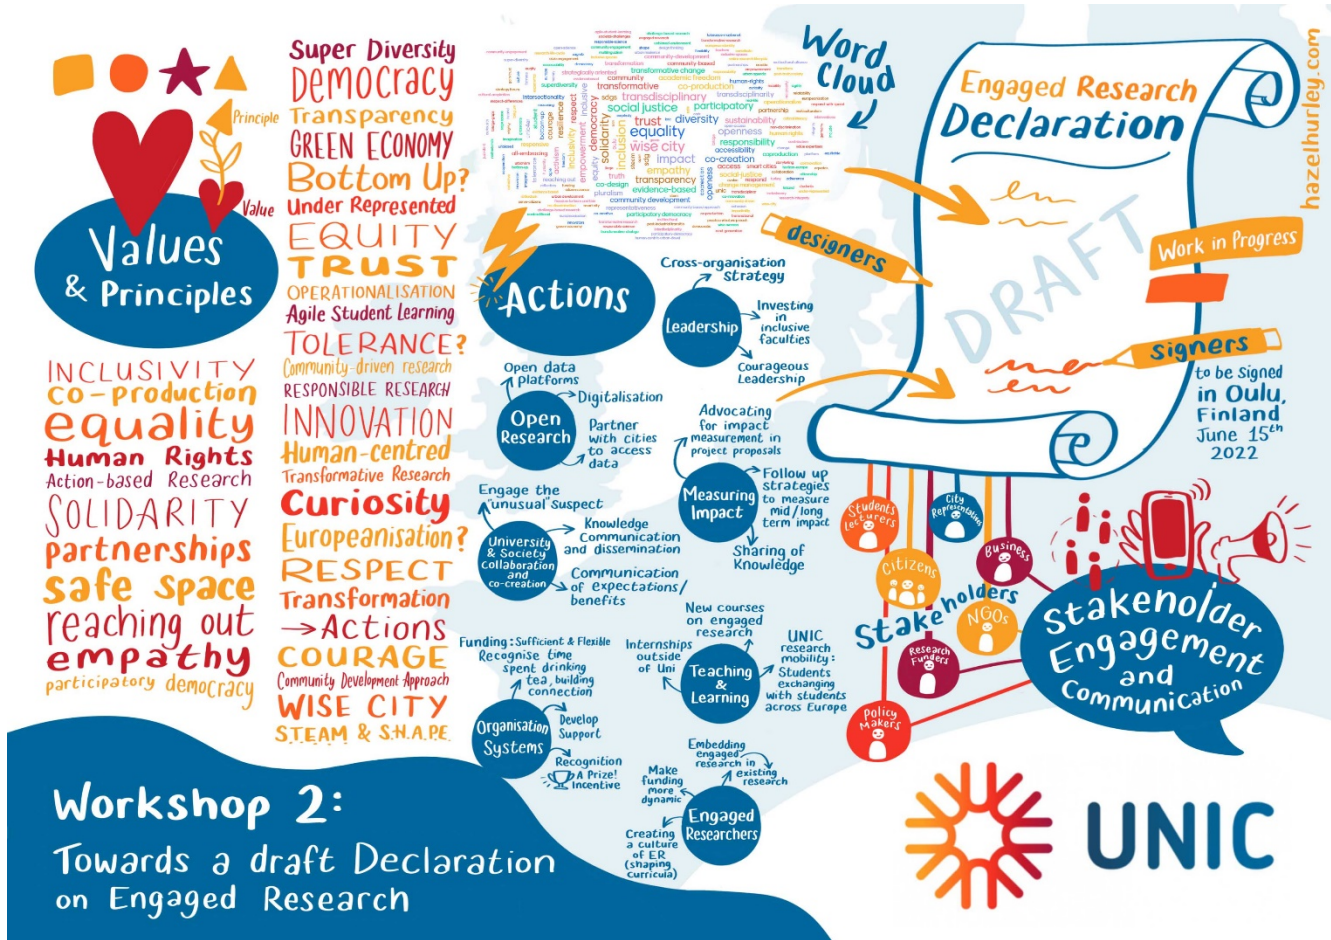 Principle
Value
Values
& Principles
INCLUSIVITY
co-production
equality
Human Rights
Action-based Research
SOLIDARITY
partnerships
safe space
reaching out
empathy
participatory democracy
Super Diversity
DEMOCRACY
Transparency
GREEN ECONOMY
Bottom Up?
Under Represented
EQUITY
TRUST
OPERATIONALISATION
Agile Student Learning
TOLERANCE?
Community-driven research
RESPONSIBLE RESEARCH
INNOVATION
Human-centred
Transformative Research
Curiosity
Europeanisation?
RESPECT
Transformation
→ Actions
COURAGE
Community Development Approach
WISE CITY
S.T.E.A.M & S.H.A.P.E.
Word
Cloud
community-development
transformation
community-based
strategically oriented
transformative change
community
academic freedom
human-rights
superdiversity
transformative
co-production
intersectionality
sdgs
transdisciplinary
transdisciplinarity
social justice
participatory
partnership
trust
diversity
sustainability
equality
openness
wise city
responsibility
accessibility
impact
co-creation
empathy
access
smart cities
transparency
social justice
truth
co-design
evidence-based
change management
pluralism
community development
representativeness
participatory democracy
resilience
inclusivity
respect
empowerment
inclusive
democracy
solidarity
inclusion
equity
courage
bottom-up
activism
openness
sdg
reaching out
all-embracing
coproduction
Actions
Cross-organisation
Strategy
Leadership
Investing
in
inclusive
faculties
Courageous
Leadership
Open data
platforms
Digitalisation
Open
Research
Partner
with cities
to access
data
Advocating
for impact
measurement in
project proposals
Measuring
Impact
Follow up
strategies
to measure
mid/long
term impact
Sharing of
Knowledge
Engage the
"unusual" suspect
University
& Society
collaboration
and
co-creation
Knowledge
Communication
and dissemination
Communication
of expectations/
benefits
Funding: Sufficient & Flexible
Recognise time
spent drinking
tea, building
connection
Organisation
Systems
Develop
Support
Recognition
A Prize!
Incentive
New courses
on engaged
research
Internships
outside
of Uni
Teaching
&
Learning
UNIC
research
mobility:
Students
exchanging
with students
across Europe
Embedding
engaged
research in
existing
research
Make
funding
more
dynamic
Engaged
Researchers
Creating
a culture
of ER
(shaping
curricula)
Engaged Research
Declaration
DRAFT
designers
signers
Work in Progress
to be signed
in Oulu,
Finland
June 15th
2022
hazelhurley.com
Students
Lecturers
City
Representatives
Citizens
Business
Stakeholders
NGOs
Research
Funders
Policy
Makers
Stakenolder
Engagement
and
Communication
Workshop 2:
Towards a draft Declaration
on Engaged Research
UNIC